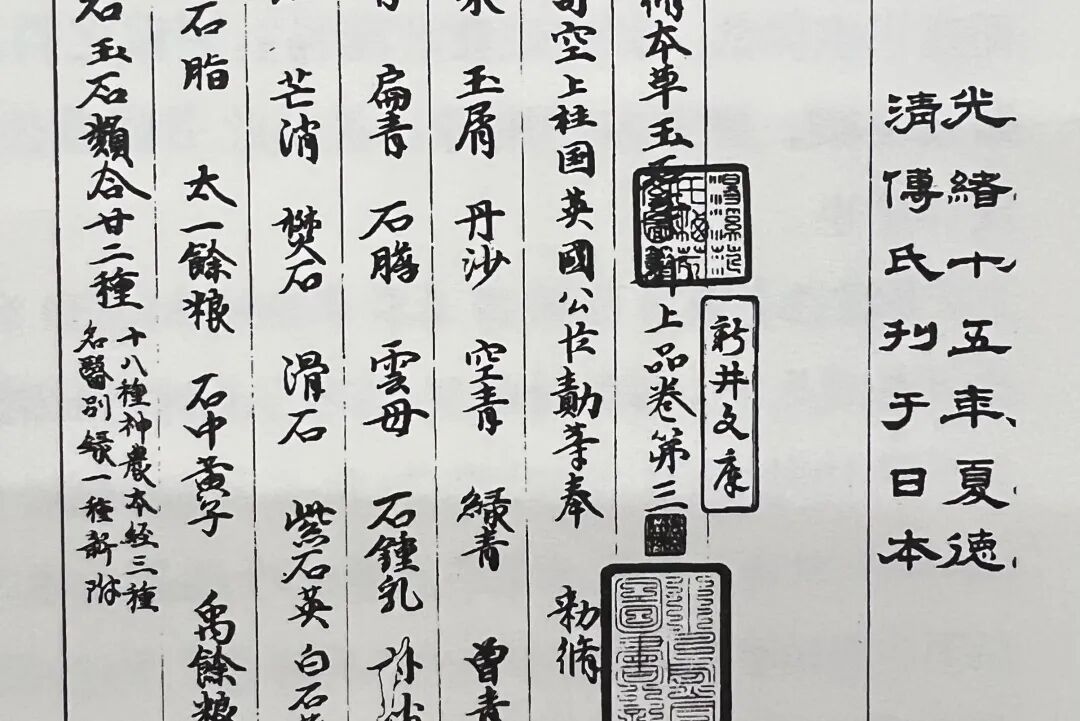 光緒十五年夏德
清傅氏刊于日本
新井文庫
脩本草玉石 上品卷第三
司空上柱国英國公臣勣等奉 勅脩
玉屑 丹沙 空青 緑青 曾青
扁青 石膽 雲母 石鍾乳 朴消
芒消 礬石 滑石 紫石英 白石英
石脂 太一餘粮 石中黄子 禹餘粮
右玉石類合廿二種
十八種神農本經三種
名醫別録一種新附